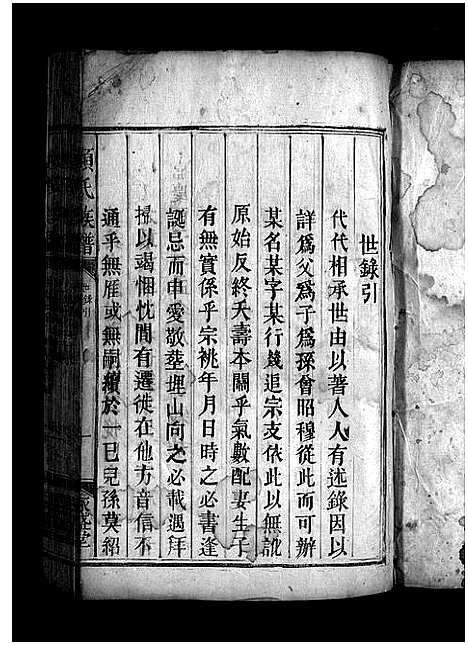 世錄引
代代相承世由以著人人有述錄因以
詳爲父爲子爲孫曾昭穆從此而可辦
某名某字某行幾追宗支依此以無訛
原始反終夭壽本關乎氣數配妻生子
有無實係乎宗祧年月日時之必書逢
誕忌而申愛敬塟埋山向之必載遇拜
掃以竭悃忱間有遷徙在他方音信不
通乎無雁或無嗣續於一已兒孫莫紹
氏族譜
世錄引